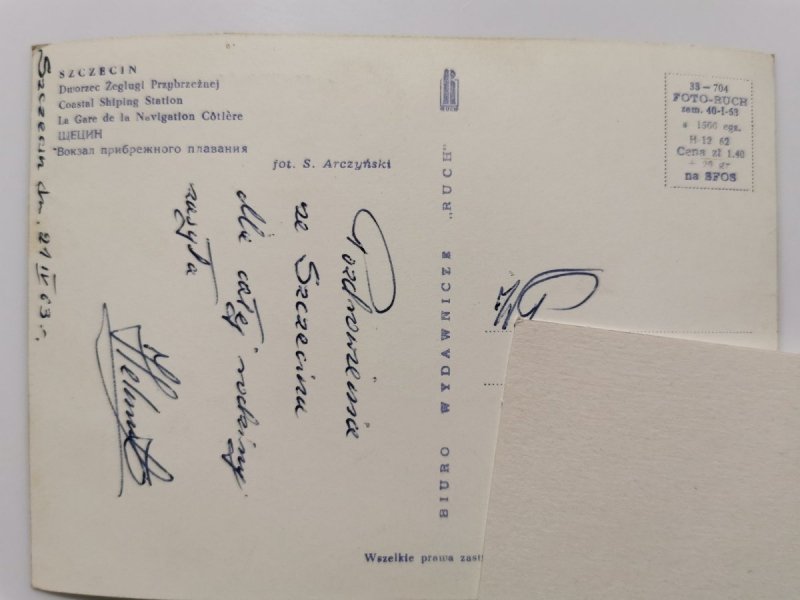 SZCZECIN
Dworzec Żeglugi Przybrzeżnej
Coastal Shiping Station
La Gare de la Navigation Côtière
ЩЕЦИН
Вокзал прибрежного плавания
fot. S. Arczyński
Szczecin dn. 21 IV 63 r.
Pozdrowienia
ze Szczecina
dla całej rodziny
zasyła
Helmut
BIURO WYDAWNICZE „RUCH"
RUCH
38-704
FOTO-RUCH
zam. 40-I-63
1500 egz.
H-12 62
Cena zł 1.40
+ 20 gr
na SFOS
Wszelkie prawa